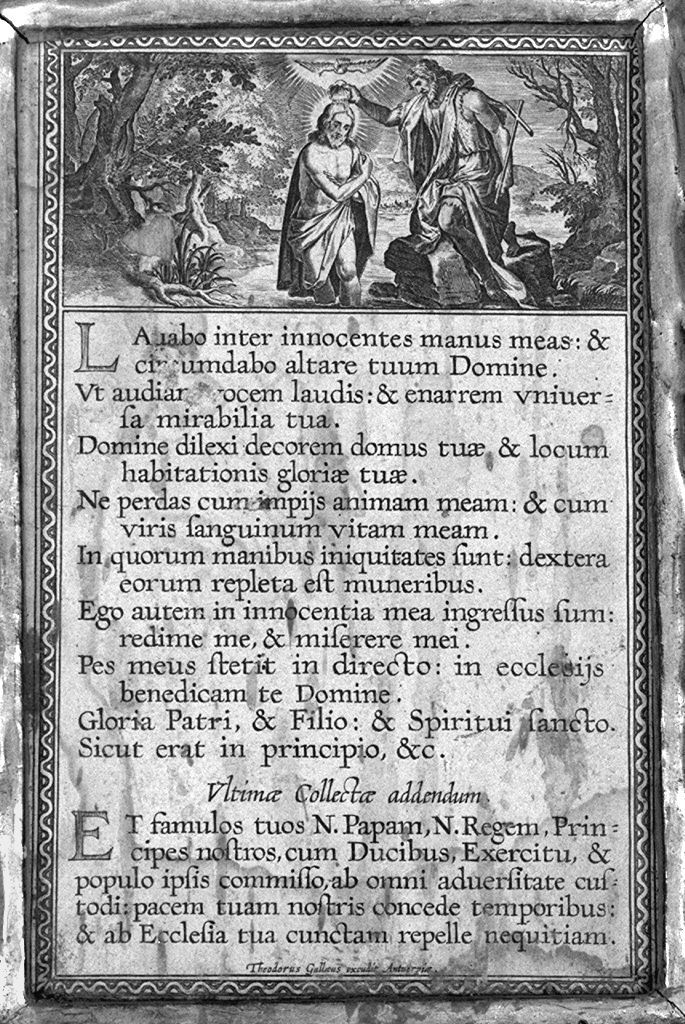 LAuabo inter innocentes manus meas: &
circumdabo altare tuum Domine.
Vt audiam vocem laudis: & enarrem vniuer=
ſa mirabilia tua.
Domine dilexi decorem domus tuæ & locum
habitationis gloriæ tuæ.
Ne perdas cum impijs animam meam: & cum
viris ſanguinum vitam meam.
In quorum manibus iniquitates ſunt: dextera
eorum repleta eſt muneribus.
Ego autem in innocentia mea ingreſſus ſum:
redime me, & miſerere mei.
Pes meus ſtetit in directo: in eccleſijs
benedicam te Domine.
Gloria Patri, & Filio: & Spiritui ſancto.
Sicut erat in principio, &c.
Vltimæ Collectæ addendum.
ET famulos tuos N. Papam, N. Regem, Prin=
cipes noſtros, cum Ducibus, Exercitu, &
populo ipſis commiſſo, ab omni aduerſitate cuſ=
todi: pacem tuam noſtris concede temporibus:
& ab Eccleſia tua cunctam repelle nequitiam.
Theodorus Gallæus excudit Antuerpiæ.